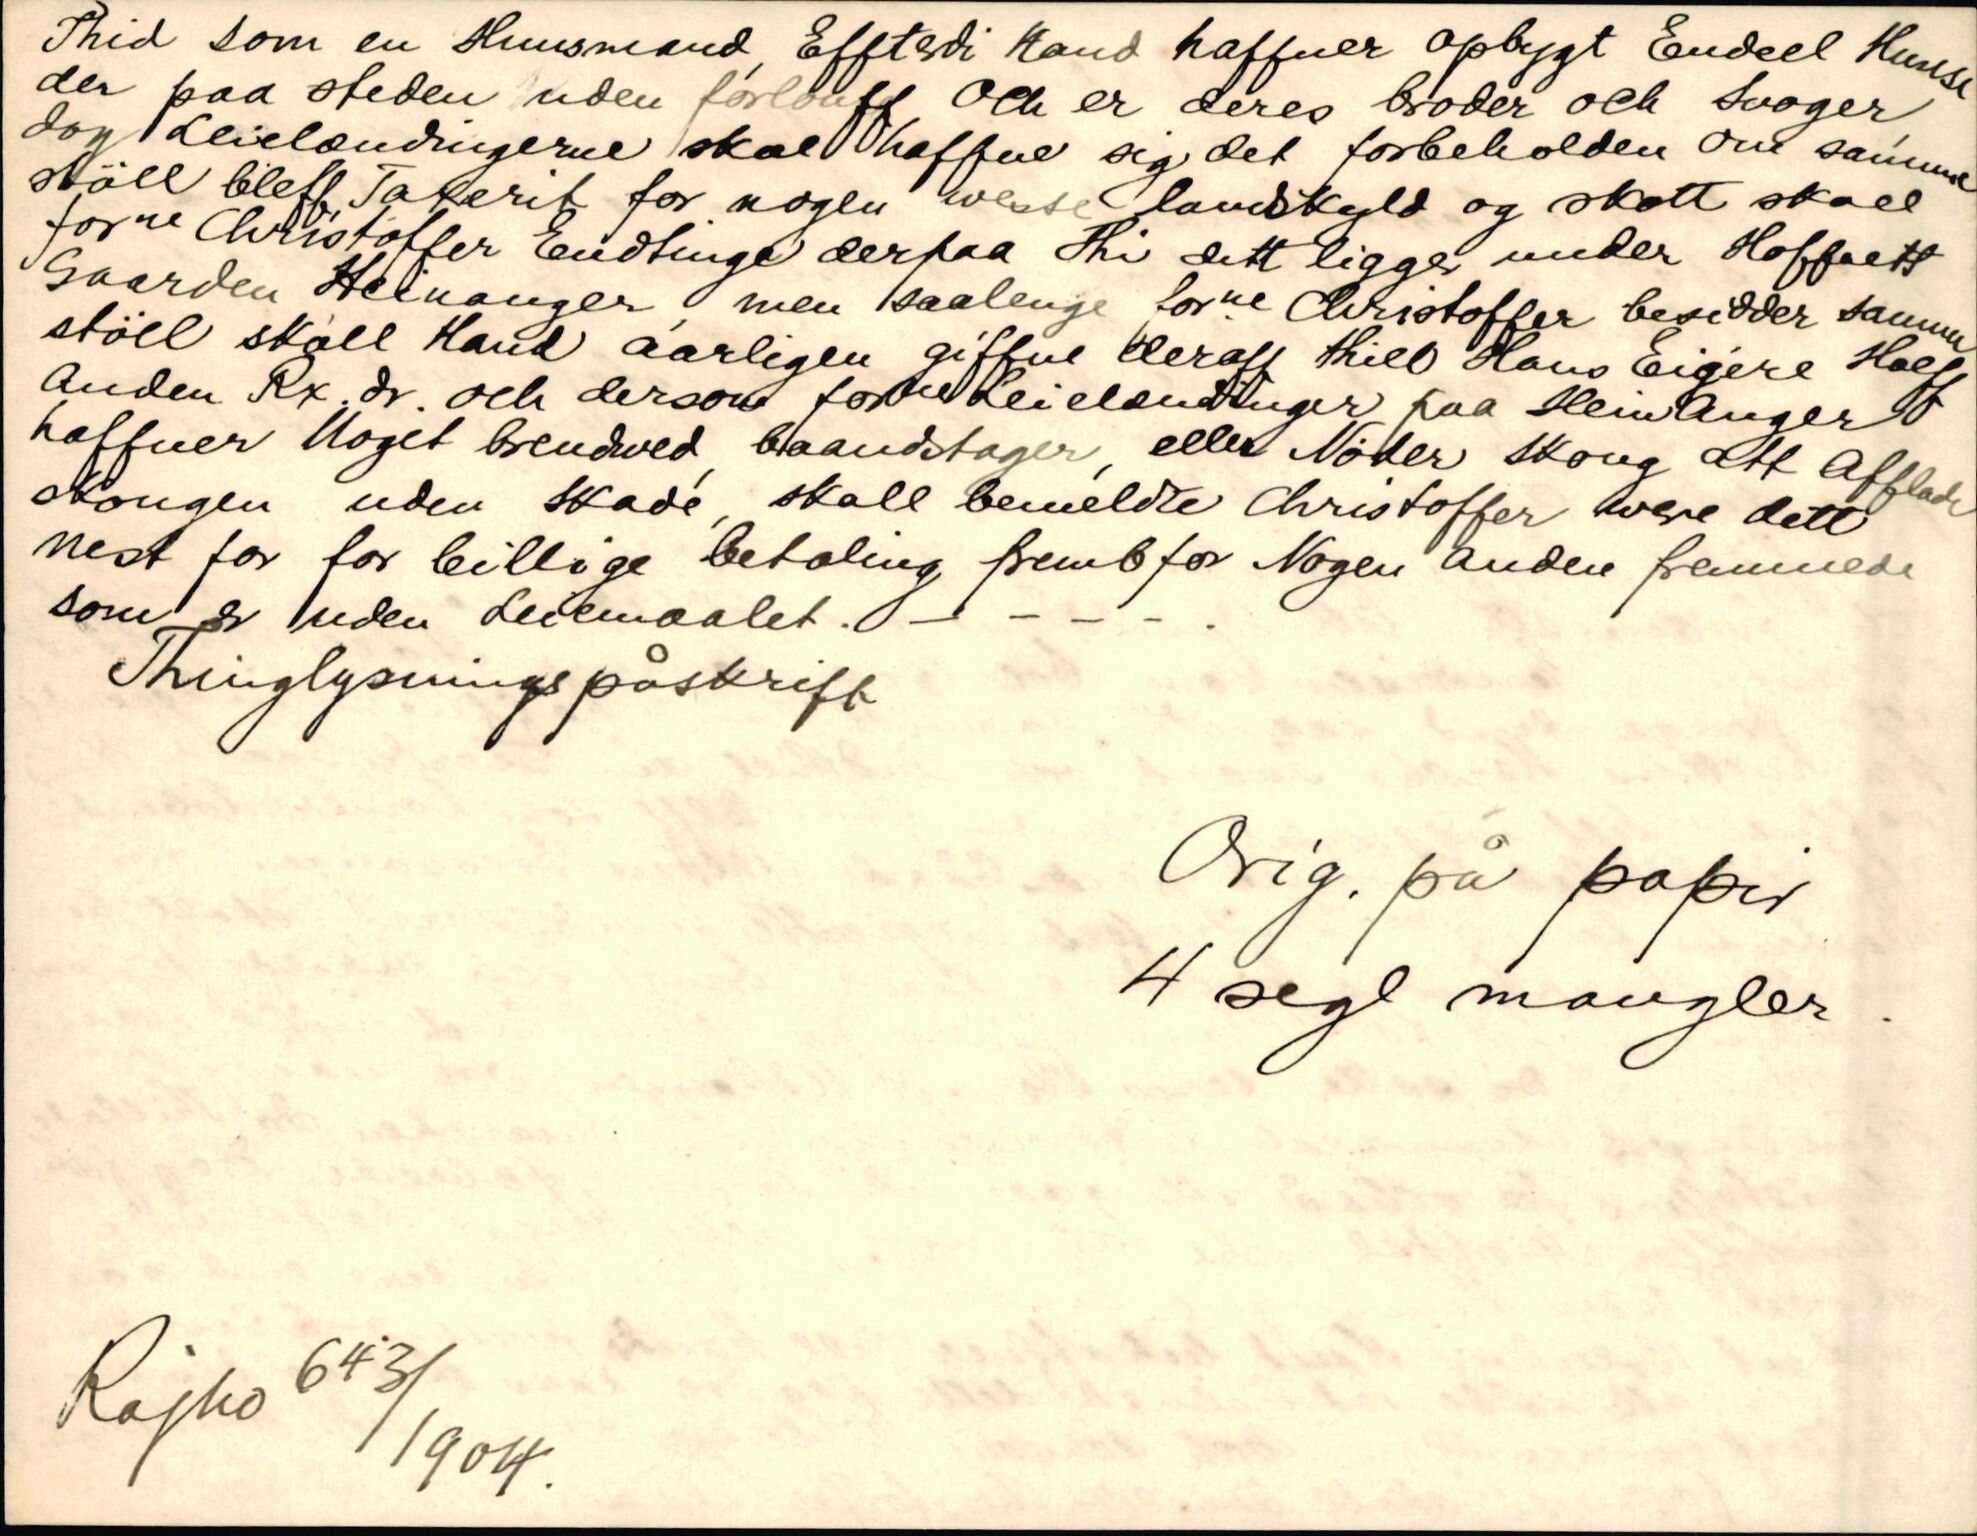 Thid som en Huusmand, Effterdi Hand haffuer opbygt Endeel Hunse
der paa steden uden forlouff Och er deres broder och Svoger
dog Leielændingerne skal haffue sig det forbeholden om samme
støll bleff Taxerit for nogen wesse landskyld og skatt skael
forne Christoffer Endtinge derpaa Thi dett ligger under Hoffuett
Gaarden Steinanger, men saalenge forne Christoffer besidder samme
støll skall Hand aarligen giffue deraff thill Hans Eigere Halff
Anden Rx. dr. och dersom forne Leielændinger paa Stein Anger
haffuer Noget brendwed, baandstager, eller Nöder Skoug att Afflade
skougen uden Skade, skall bemeldte Christoffer were dett
nest for for billige betaling fremb for Nogen Anden fremmede
som er uden Leiemaalet. - - - - -.
Thinglysnings påskrift
Orig. på papir
4 segl mangler.
643/
1904.